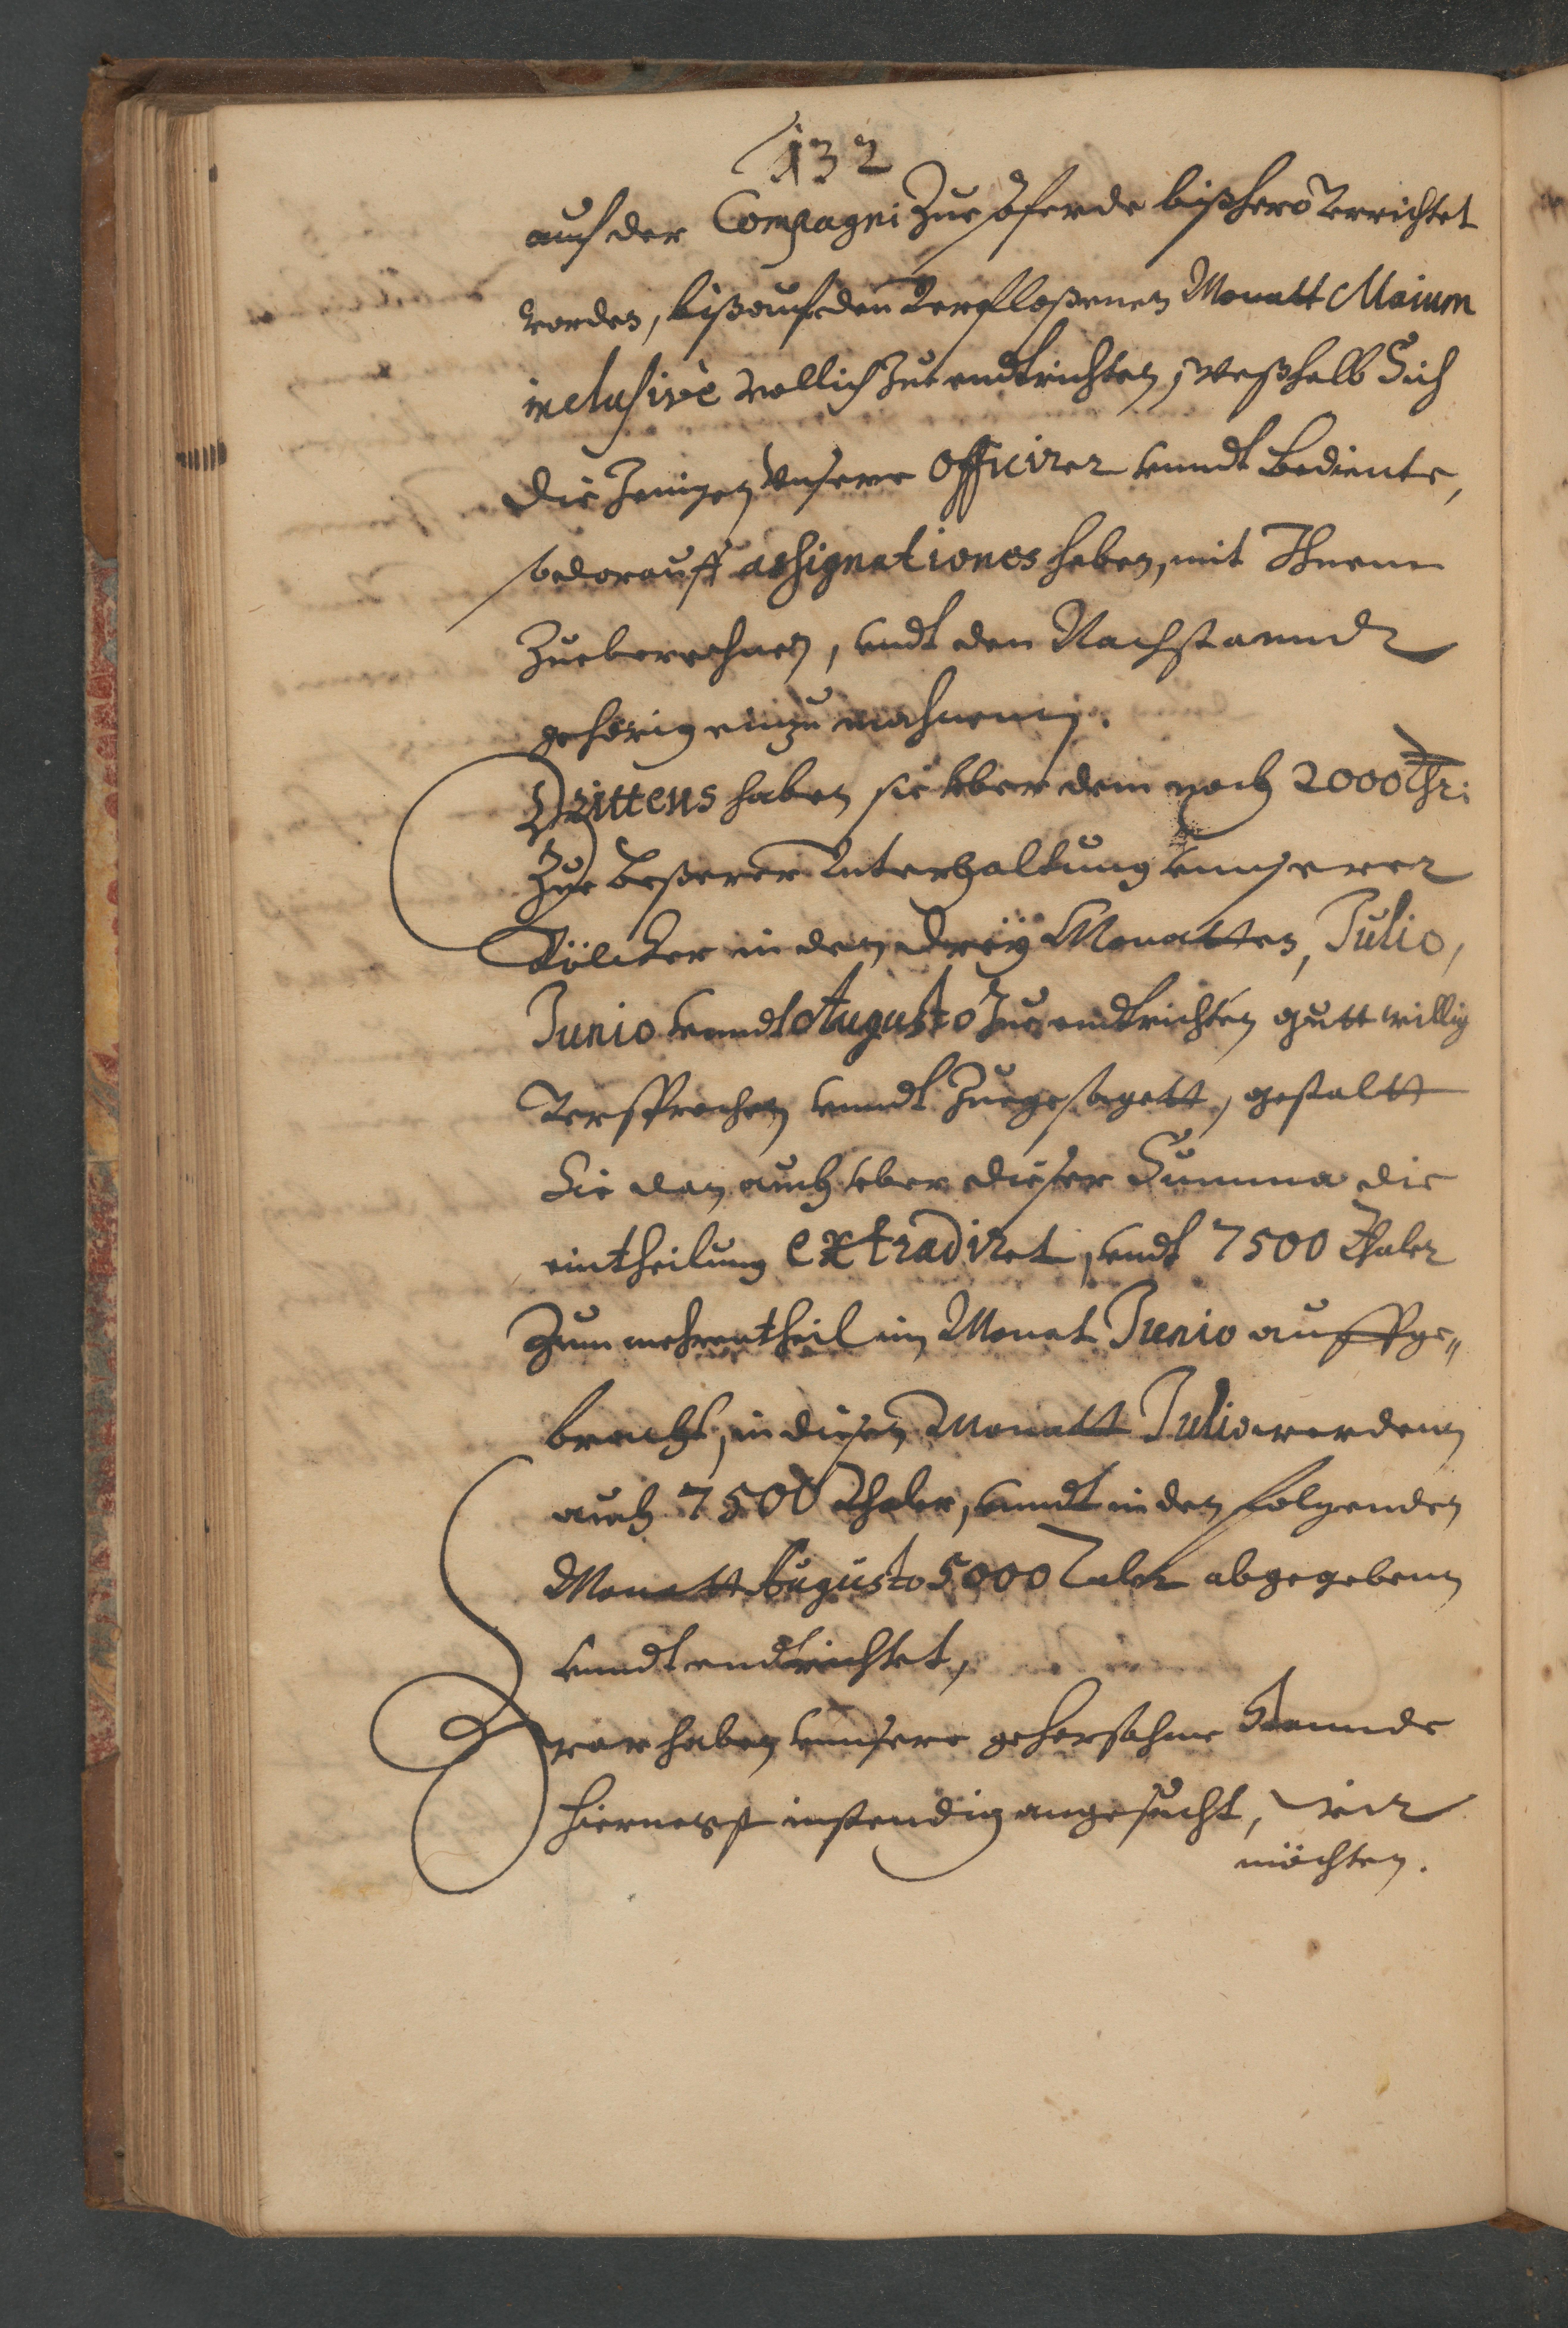 132
auch der Compagni Zue Pferde bißhero Verrichtet
worden, biß auf den Verfloßenen Monatt Maium
inclusivè vollich Zue endtrichten, weßhalb Sich
die Jenigen Unsere Officirer vnndt bediente,
so darauff assignationes haben, mit Ihnen
Zueberechnen, vndt den Nachstanndt
gehörig einzumahnenn.
Drittens haben sie vber dem noch 2000 Thr:
Zue beßerer Unterhaltung vnnserer
Völcker in den dreÿ Monatten, Julio,
Junio vnndt Augusto Zue endtrichten guttwillig
Versprochen vnndt Zuegesagett, gestaltt
Sie dan auch vber dieser Summa die
eintheilung extradiret, vndt 7500 Thaler
Zum mehrentheil im Monat Junio auffge„
bracht, in diesen Monatt Julio werdenn
auch 7500 Thaler, vnndt in den folgenden
Monatt Augusto 5000 Taler abgegebenn
vnndt endtrichtet,
Zwar haben vnnsere gehorsahme Stannde
hiernegst instendig angesucht, wir
möchten.